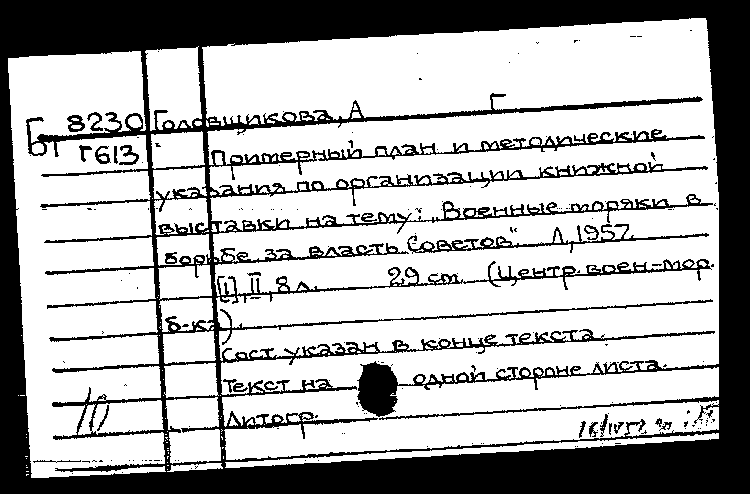 Г 8230 Головщикова, А Г
от Г613 Примерный план и методические
указания по организации книжной
выставки на тему: „Военные моряки в
борьбе за власть Советов". Л, 1957.
[1], II, 8 л. 29 см (Центр. воен.-мор.
б-ка).
Сост указан в конце текста.
Текст на одной стороне листа.
Литогр.
10